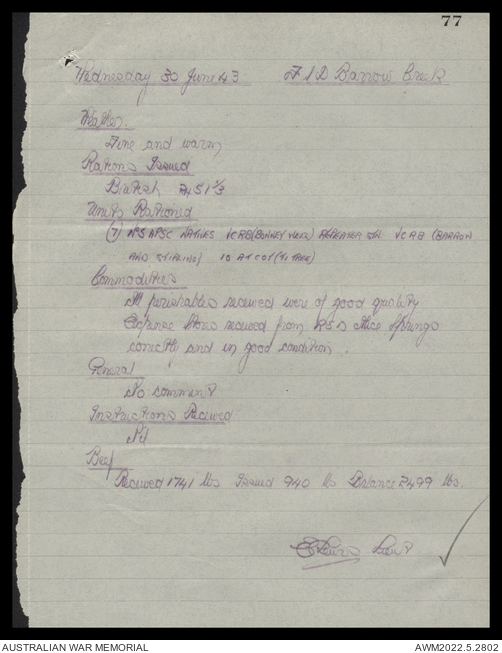 77
Wednesday 30 June 43 F S D Barrow Creek
Weather.
Fine and warm
Rations Issued
British 2451⅓
Units Rationed
(7) NATIVES VCRB (BONNEY WELL) REPEATER STN VCRB (BARROW
AND STIRLING) 10 AT COY (TI TREE)
Commodities
All perishables received were of good quality
Expense Stores received from Alice Springs
correctly and in good condition.
General
No comment
Instructions Received
Nil
Beef
Received 1741 lbs Issued 940 lbs Balance 2499 lbs.
Lewis Lieut
AUSTRALIAN WAR MEMORIAL AWM2022.5.2802